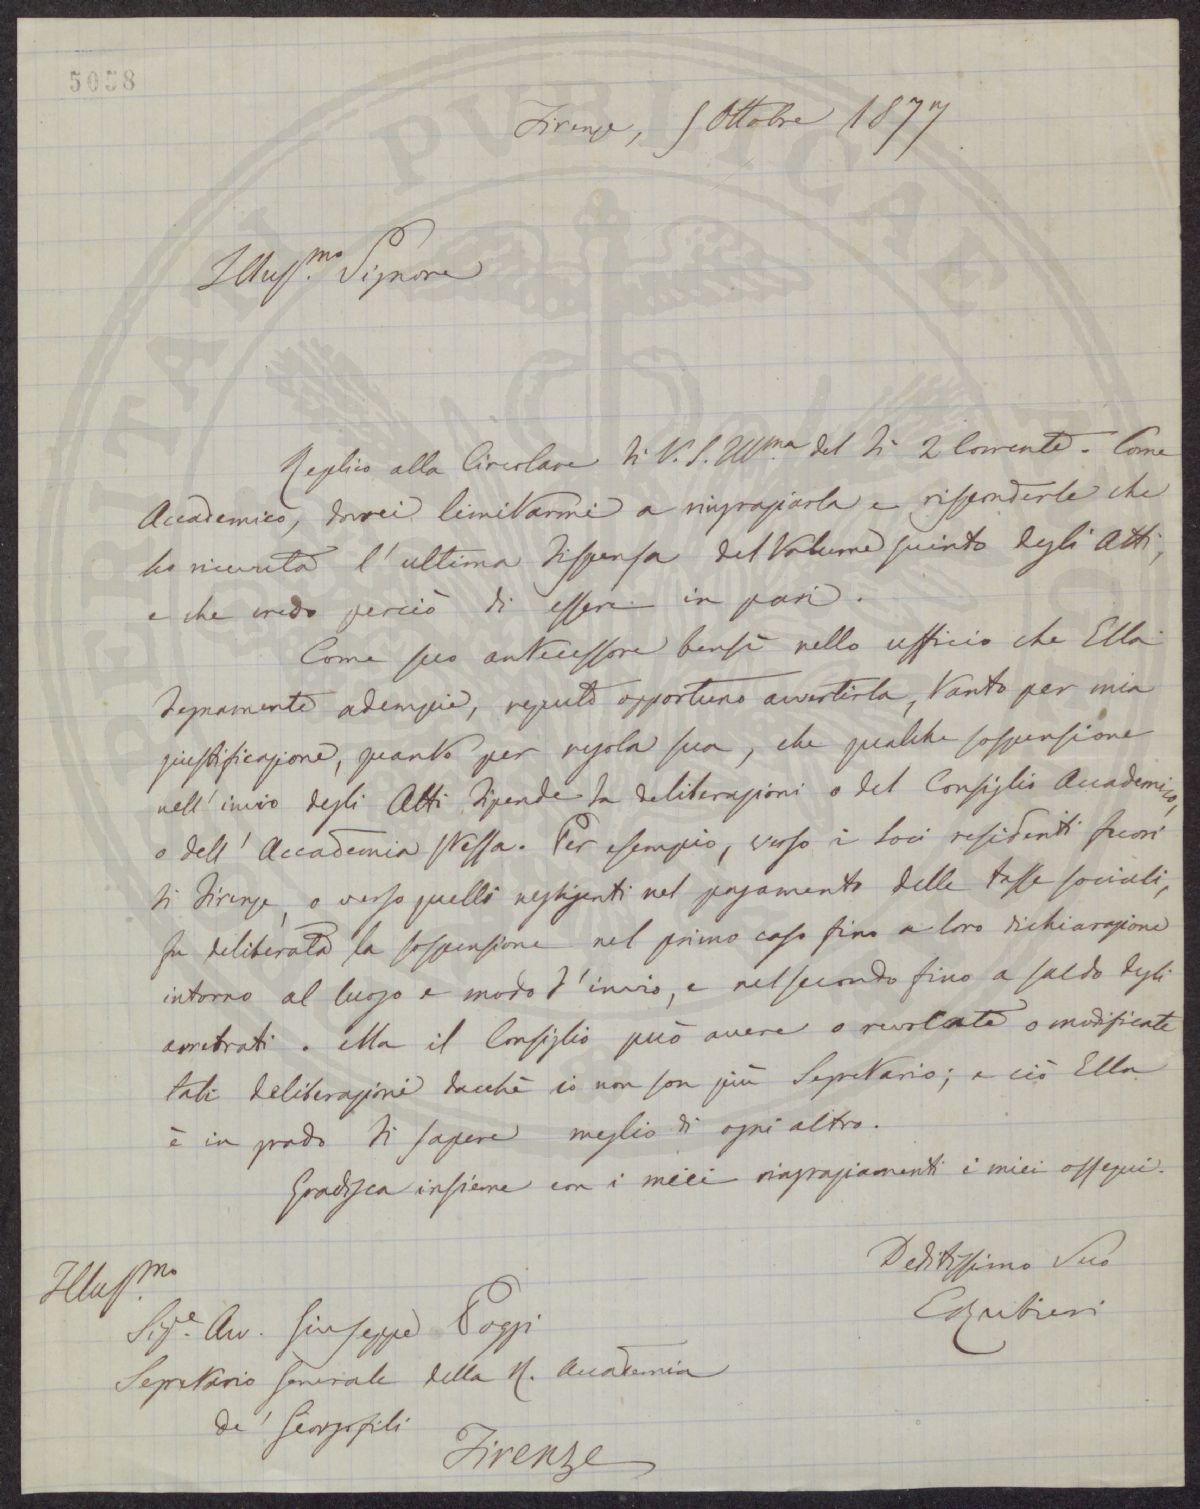 5058
Firenze, 5 Ottobre 1877
Illus.mo Signore
Replico alla Circolare di V. S. Ill.ma del dì 2 Corrente. Come
Accademico, dovrei limitarmi a ringraziarla e risponderle che
ho ricevuta l'ultima dispensa del Volume quinto degli Atti,
e che credo perciò di essere in pari.
Come suo antecessore bensì nello ufficio che Ella
degnamente adempie, reputo opportuno avvertirla, tanto per mia
giustificazione, quanto per regola sua, che qualche sospensione
nell'invio degli Atti dipende da deliberazioni o del Consiglio Accademico,
o dell'Accademia stessa. Per esempio, verso i Soci residenti fuori
di Firenze, o verso quelli negligenti nel pagamento delle tasse sociali,
fu deliberata la sospensione nel primo caso fino a loro dichiarazione
intorno al luogo e modo d'invio, e nel secondo fino a saldo degli
arretrati. Ma il Consiglio può avere o revocate o modificate
tali deliberazioni dacchè io non son più Segretario; e ciò Ella
è in grado di sapere meglio di ogni altro.
Gradisca insieme con i miei ringraziamenti i miei ossequi.
Deditissimo Suo
E Rubieri
Illus.mo
Sig.e Av. Giuseppe Poggi
Segretario Generale della R. Accademia
de' Georgofili
Firenze